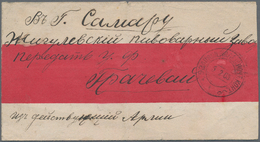 Въ Г. Самару
Жигулевскій пивоваренный заводъ
передать
Грачевой
изъ действующей Арміи